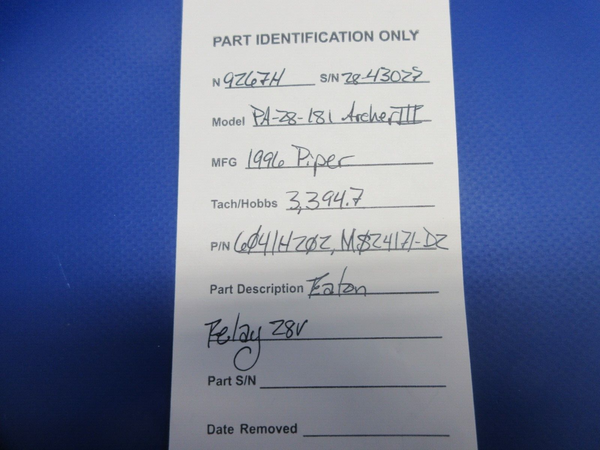 PART IDENTIFICATION ONLY
N 9267H S/N 28-43027
Model PA-28-181 Archer III
MFG 1996 Piper
Tach/Hobbs 3,394.7
P/N 6041H202, MS24171-D2
Part Description Eaton
Relay 28V
Part S/N
Date Removed